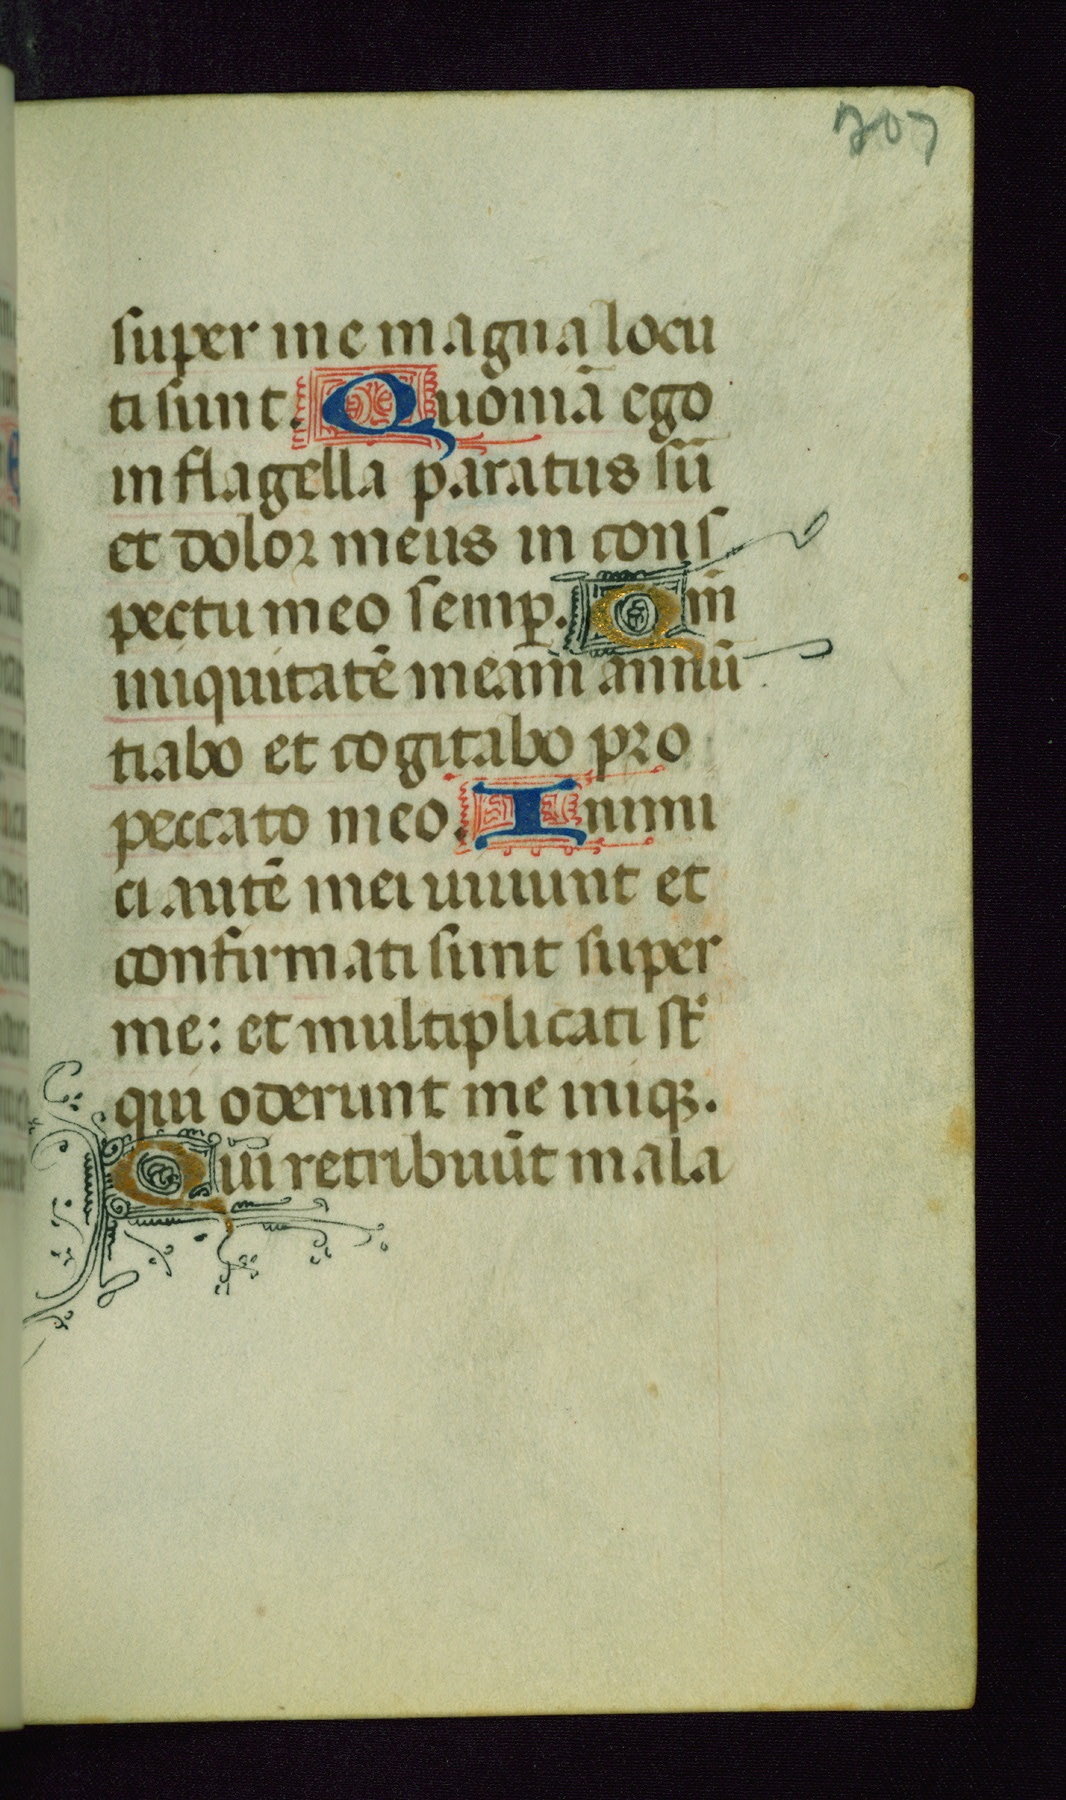 207
super me magna locu
ti sunt. Quoniā ego
in flagella paratus sū
et dolor meus in cons
pectu meo semp. Qm̄
iniquitatē meam annū
tiabo et cogitabo pro
peccato meo. Inimi
ci autē mei uiuunt et
confirmati sunt super
me: et multiplicati st̄
qui oderunt me iniqꝫ.
Qui retribuūt mala